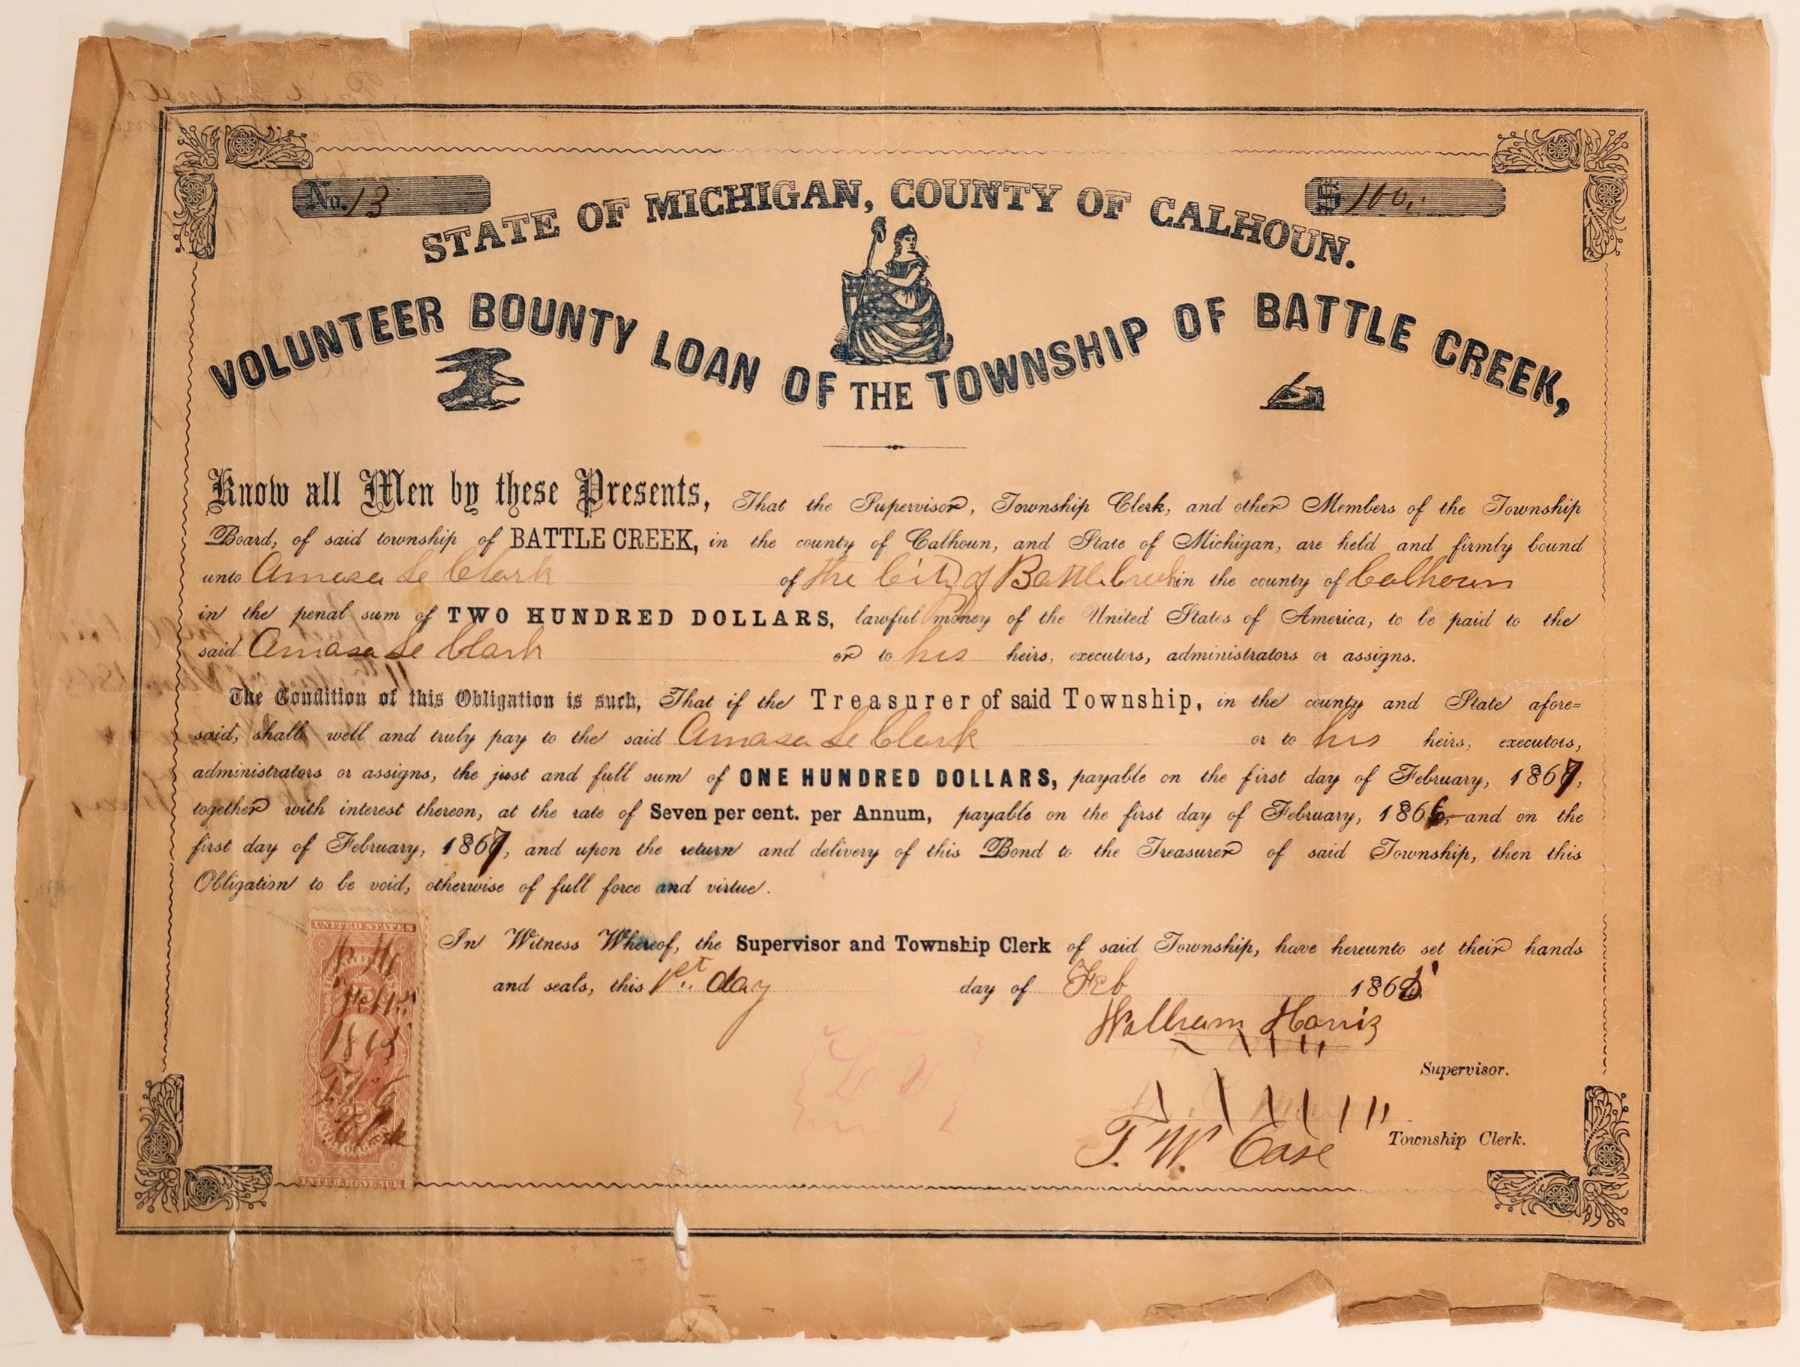 No. 13
$ 100.
STATE OF MICHIGAN, COUNTY OF CALHOUN.
VOLUNTEER BOUNTY LOAN OF THE TOWNSHIP OF BATTLE CREEK,
Know all Men by these Presents, That the Supervisor, Township Clerk, and other Members of the Township
Board, of said township of BATTLE CREEK, in the county of Calhoun, and State of Michigan, are held and firmly bound
unto Amasa Clark of the City of Battle Creek in the county of Calhoun
in the penal sum of TWO HUNDRED DOLLARS, lawful money of the United States of America, to be paid to the
said Amasa Clark or to his heirs, executors, administrators or assigns.
The Condition of this Obligation is such, That if the Treasurer of said Township, in the county and State afore=
said, shall well and truly pay to the said Amasa Clark or to his heirs, executors,
administrators or assigns, the just and full sum of ONE HUNDRED DOLLARS, payable on the first day of February, 1867,
together with interest thereon, at the rate of Seven per cent. per Annum, payable on the first day of February, 1866, and on the
first day of February, 1867, and upon the return and delivery of this Bond to the Treasurer of said Township, then this
Obligation to be void, otherwise of full force and virtue.
In Witness Whereof, the Supervisor and Township Clerk of said Township, have hereunto set their hands
and seals, this 1st. day day of Feb 1865
William Harris
Supervisor.
T. W. Case
Township Clerk.
UNITED STATES
Feb 1st
1865
T. W. C
Clerk
INTER. REVENUE